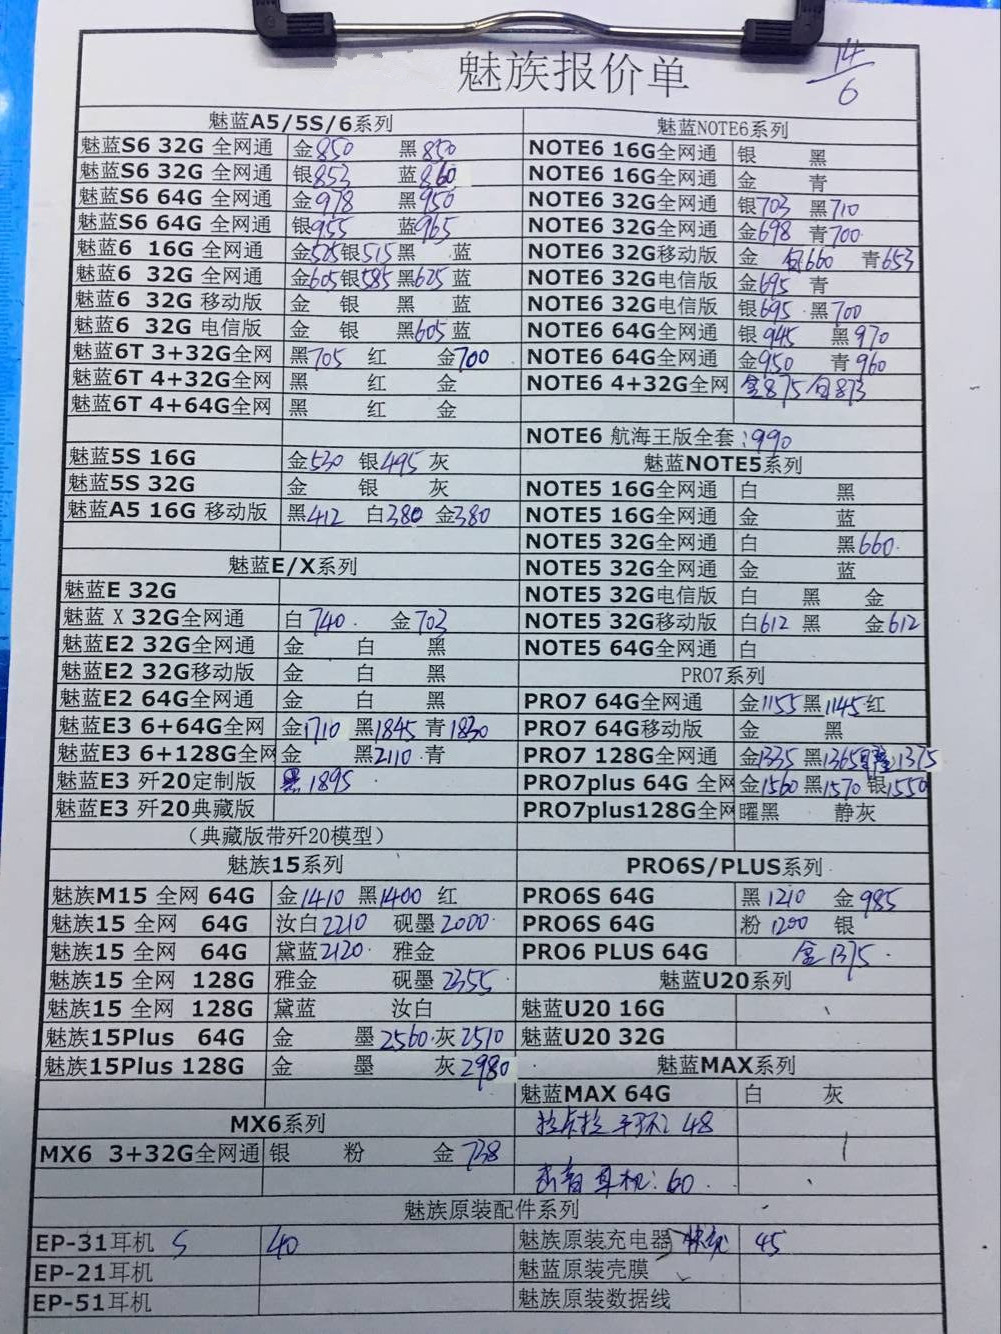 魅族报价单
14/6
魅蓝A5/5S/6系列
魅蓝S6 32G 全网通 金850 黑850
魅蓝S6 32G 全网通 银853 蓝860
魅蓝S6 64G 全网通 金978 黑950
魅蓝S6 64G 全网通 银955 蓝965
魅蓝6 16G 全网通 金525银515黑 蓝
魅蓝6 32G 全网通 金605银585黑625蓝
魅蓝6 32G 移动版 金 银 黑 蓝
魅蓝6 32G 电信版 金 银 黑605蓝
魅蓝6T 3+32G全网 黑705 红 金700
魅蓝6T 4+32G全网 黑 红 金
魅蓝6T 4+64G全网 黑 红 金
魅蓝5S 16G 金530 银495 灰
魅蓝5S 32G 金 银 灰
魅蓝A5 16G 移动版 黑412 白380 金380
魅蓝E/X系列
魅蓝E 32G
魅蓝 X 32G全网通 白740 金703
魅蓝E2 32G全网通 金 白 黑
魅蓝E2 32G移动版 金 白 黑
魅蓝E2 64G全网通 金 白 黑
魅蓝E3 6+64G全网 金1710 黑1845 青1830
魅蓝E3 6+128G全网 金 黑2110 青
魅蓝E3 歼20定制版 黑1895
魅蓝E3 歼20典藏版
（典藏版带歼20模型）
魅族15系列
魅族M15 全网 64G 金1410 黑1400 红
魅族15 全网 64G 汝白2210 砚墨2000
魅族15 全网 64G 黛蓝2120 雅金
魅族15 全网 128G 雅金 砚墨2355
魅族15 全网 128G 黛蓝 汝白
魅族15Plus 64G 金 墨2560 灰2510
魅族15Plus 128G 金 墨 灰2980
MX6系列
MX6 3+32G全网通 银 粉 金738
魅蓝NOTE6系列
NOTE6 16G全网通 银 黑
NOTE6 16G全网通 金 青
NOTE6 32G全网通 银703 黑710
NOTE6 32G全网通 金698 青700
NOTE6 32G移动版 金 660 青653
NOTE6 32G电信版 金695 青
NOTE6 32G电信版 银695 黑700
NOTE6 64G全网通 银945 黑970
NOTE6 64G全网通 金950 青960
NOTE6 4+32G全网 金875 873
NOTE6 航海王版全套:990
魅蓝NOTE5系列
NOTE5 16G全网通 白 黑
NOTE5 16G全网通 金 蓝
NOTE5 32G全网通 白 黑660
NOTE5 32G全网通 金 蓝
NOTE5 32G电信版 白 黑 金
NOTE5 32G移动版 白612 黑 金612
NOTE5 64G全网通 白
PRO7系列
PRO7 64G全网通 金1155黑1145红
PRO7 64G移动版 金 黑
PRO7 128G全网通 金1335 黑1365 1375
PRO7plus 64G 全网 金1560 黑1570 银1550
PRO7plus128G全网 曜黑 静灰
PRO6S/PLUS系列
PRO6S 64G 黑1210 金985
PRO6S 64G 粉1200 银
PRO6 PLUS 64G 金1375
魅蓝U20系列
魅蓝U20 16G
魅蓝U20 32G
魅蓝MAX系列
魅蓝MAX 64G 白 灰
拉卡拉 手环2 48
耳机:60
魅族原装配件系列
EP-31耳机 S 40 魅族原装充电器 45
EP-21耳机 魅蓝原装壳膜
EP-51耳机 魅族原装数据线